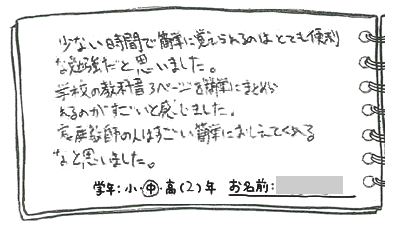 少ない時間で簡単に覚えられるのはとても便利
な勉強だと思いました。
学校の教科書3ページを簡単にまとめら
れるのがすごいと感じました。
家庭教師の人はすごい簡単におしえてくれる
なと思いました。
学年:小・中・高(2)年 お名前: